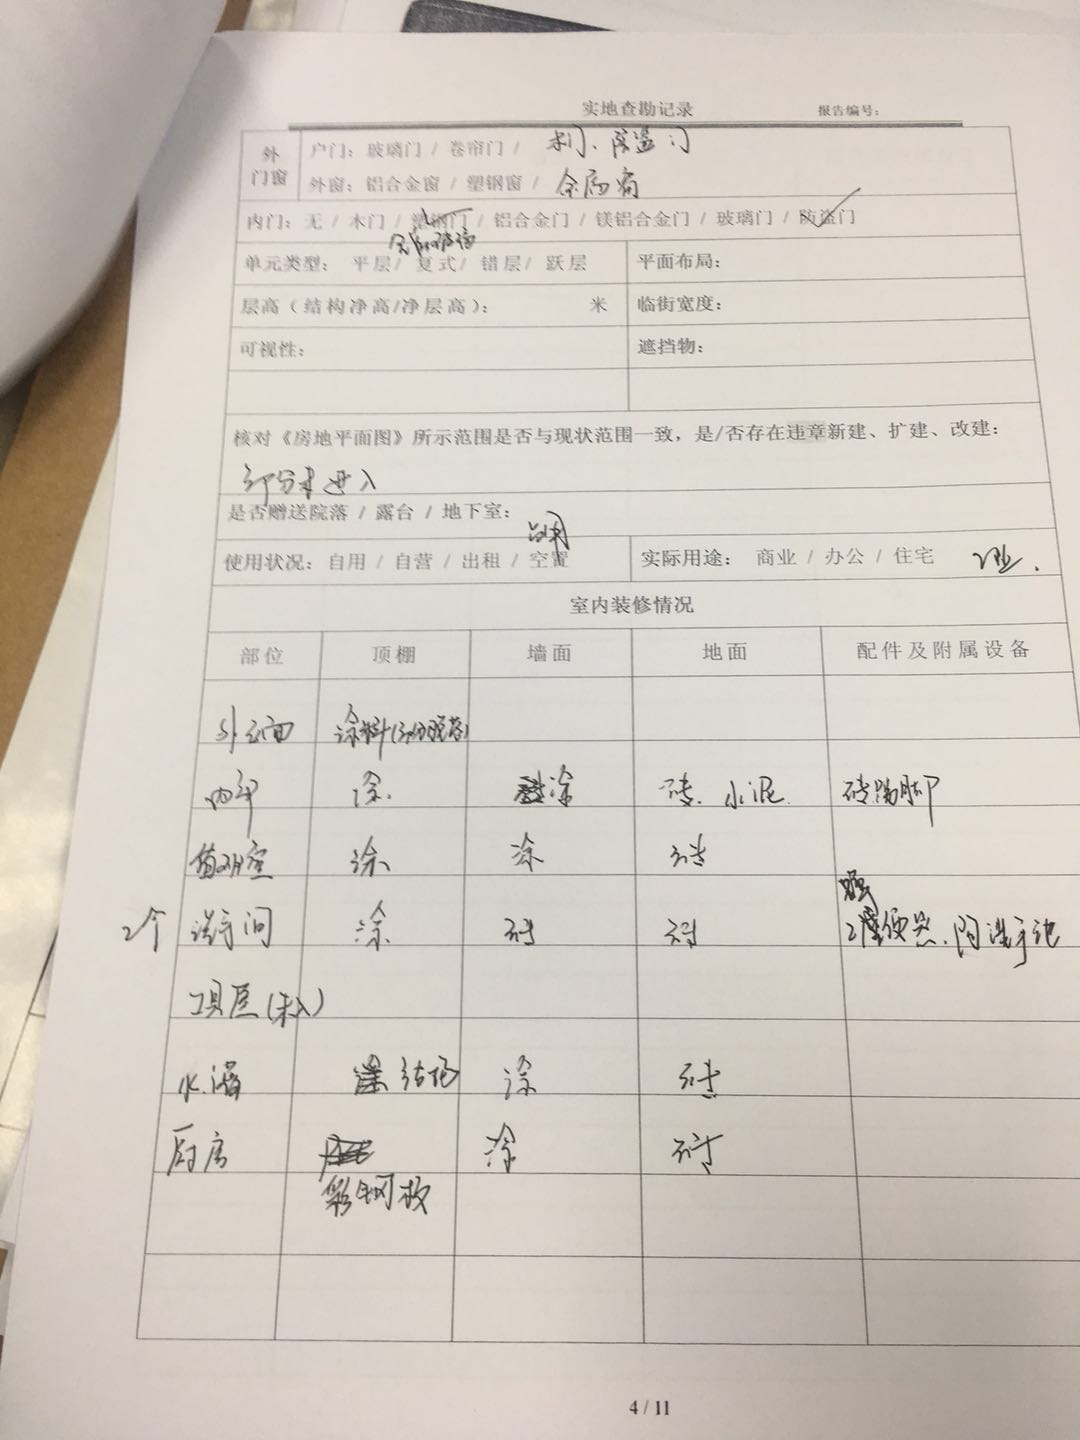 实地查勘记录 报告编号：
外门窗 户门：玻璃门 / 卷帘门 / 木门、防盗门
外窗：铝合金窗 / 塑钢窗 /
内门：无 / 木门 / 塑钢门 / 铝合金门 / 镁铝合金门 / 玻璃门 / 防盗门
单元类型： 平层/ 复式/ 错层/ 跃层 平面布局：
层高（结构净高/净层高）： 米 临街宽度：
可视性： 遮挡物：
核对《房地平面图》所示范围是否与现状范围一致，是/否存在违章新建、扩建、改建：
部分未进入
是否赠送院落 / 露台 / 地下室：
使用状况：自用 / 自营 / 出租 / 空置 实际用途： 商业 / 办公 / 住宅 工业.
室内装修情况
部位 顶棚 墙面 地面 配件及附属设备
外立面 涂料(部分脱落)
内部 涂. 涂 砖、水泥 砖踢脚
值班室 涂 涂 砖
2个 洗手间 涂 砖 砖 便器、洗手池
工具房(未入)
水 涂 砖
厨房 涂 砖
彩钢板
4 / 11